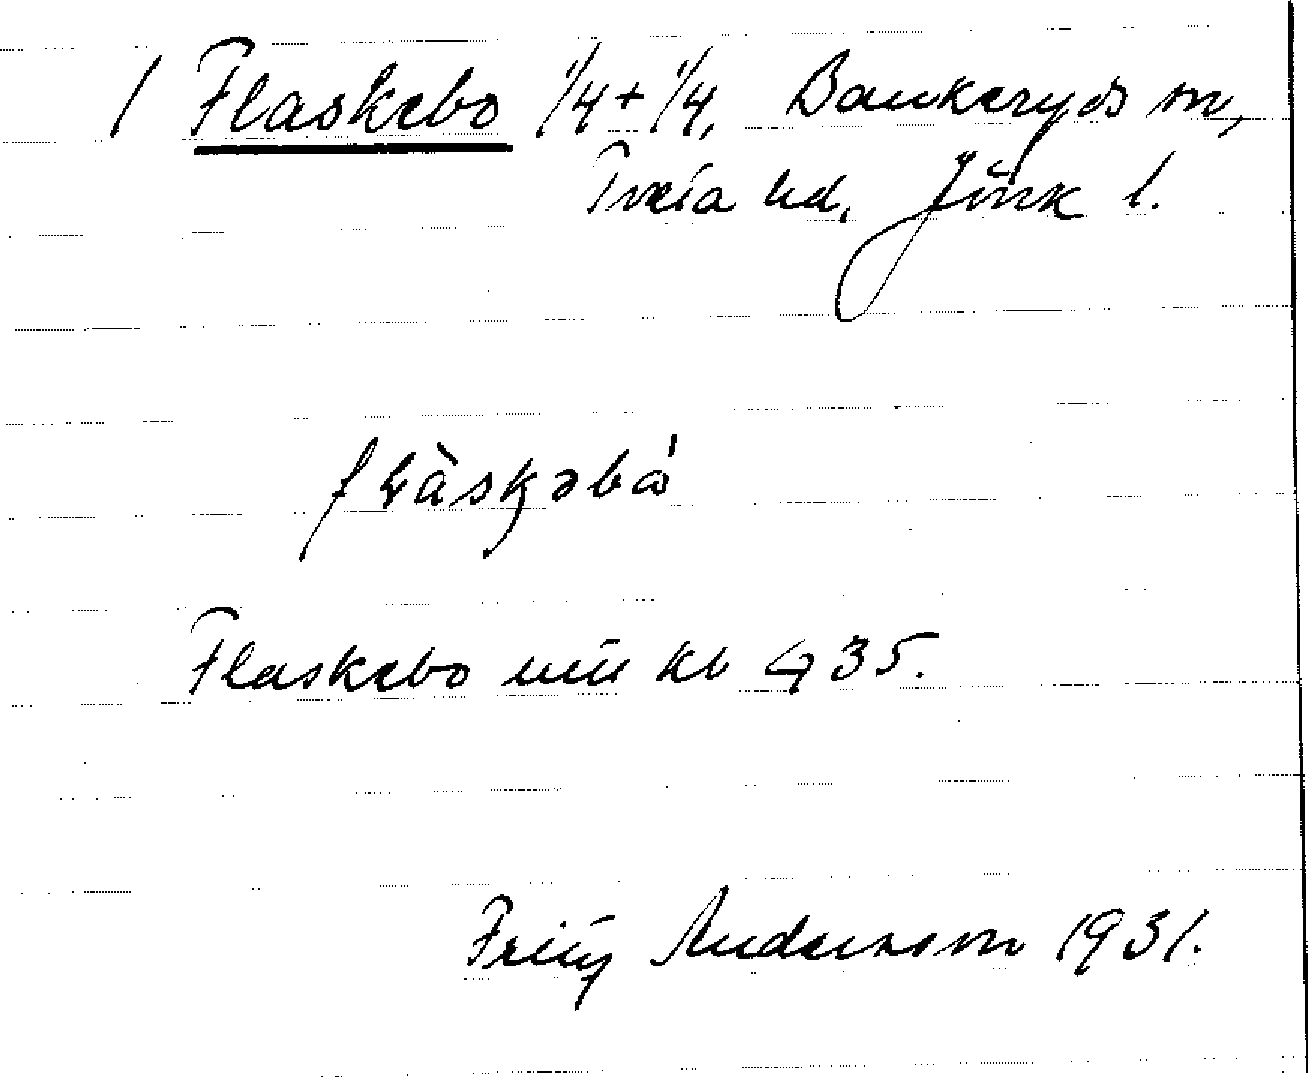 1 Flaskebo 1/4+1/4, Bankeryds sn,
Tveta hd, Jönk l.
flàskəbó
Flaskebo uti kb 435.
Fritz Andersson 1931.